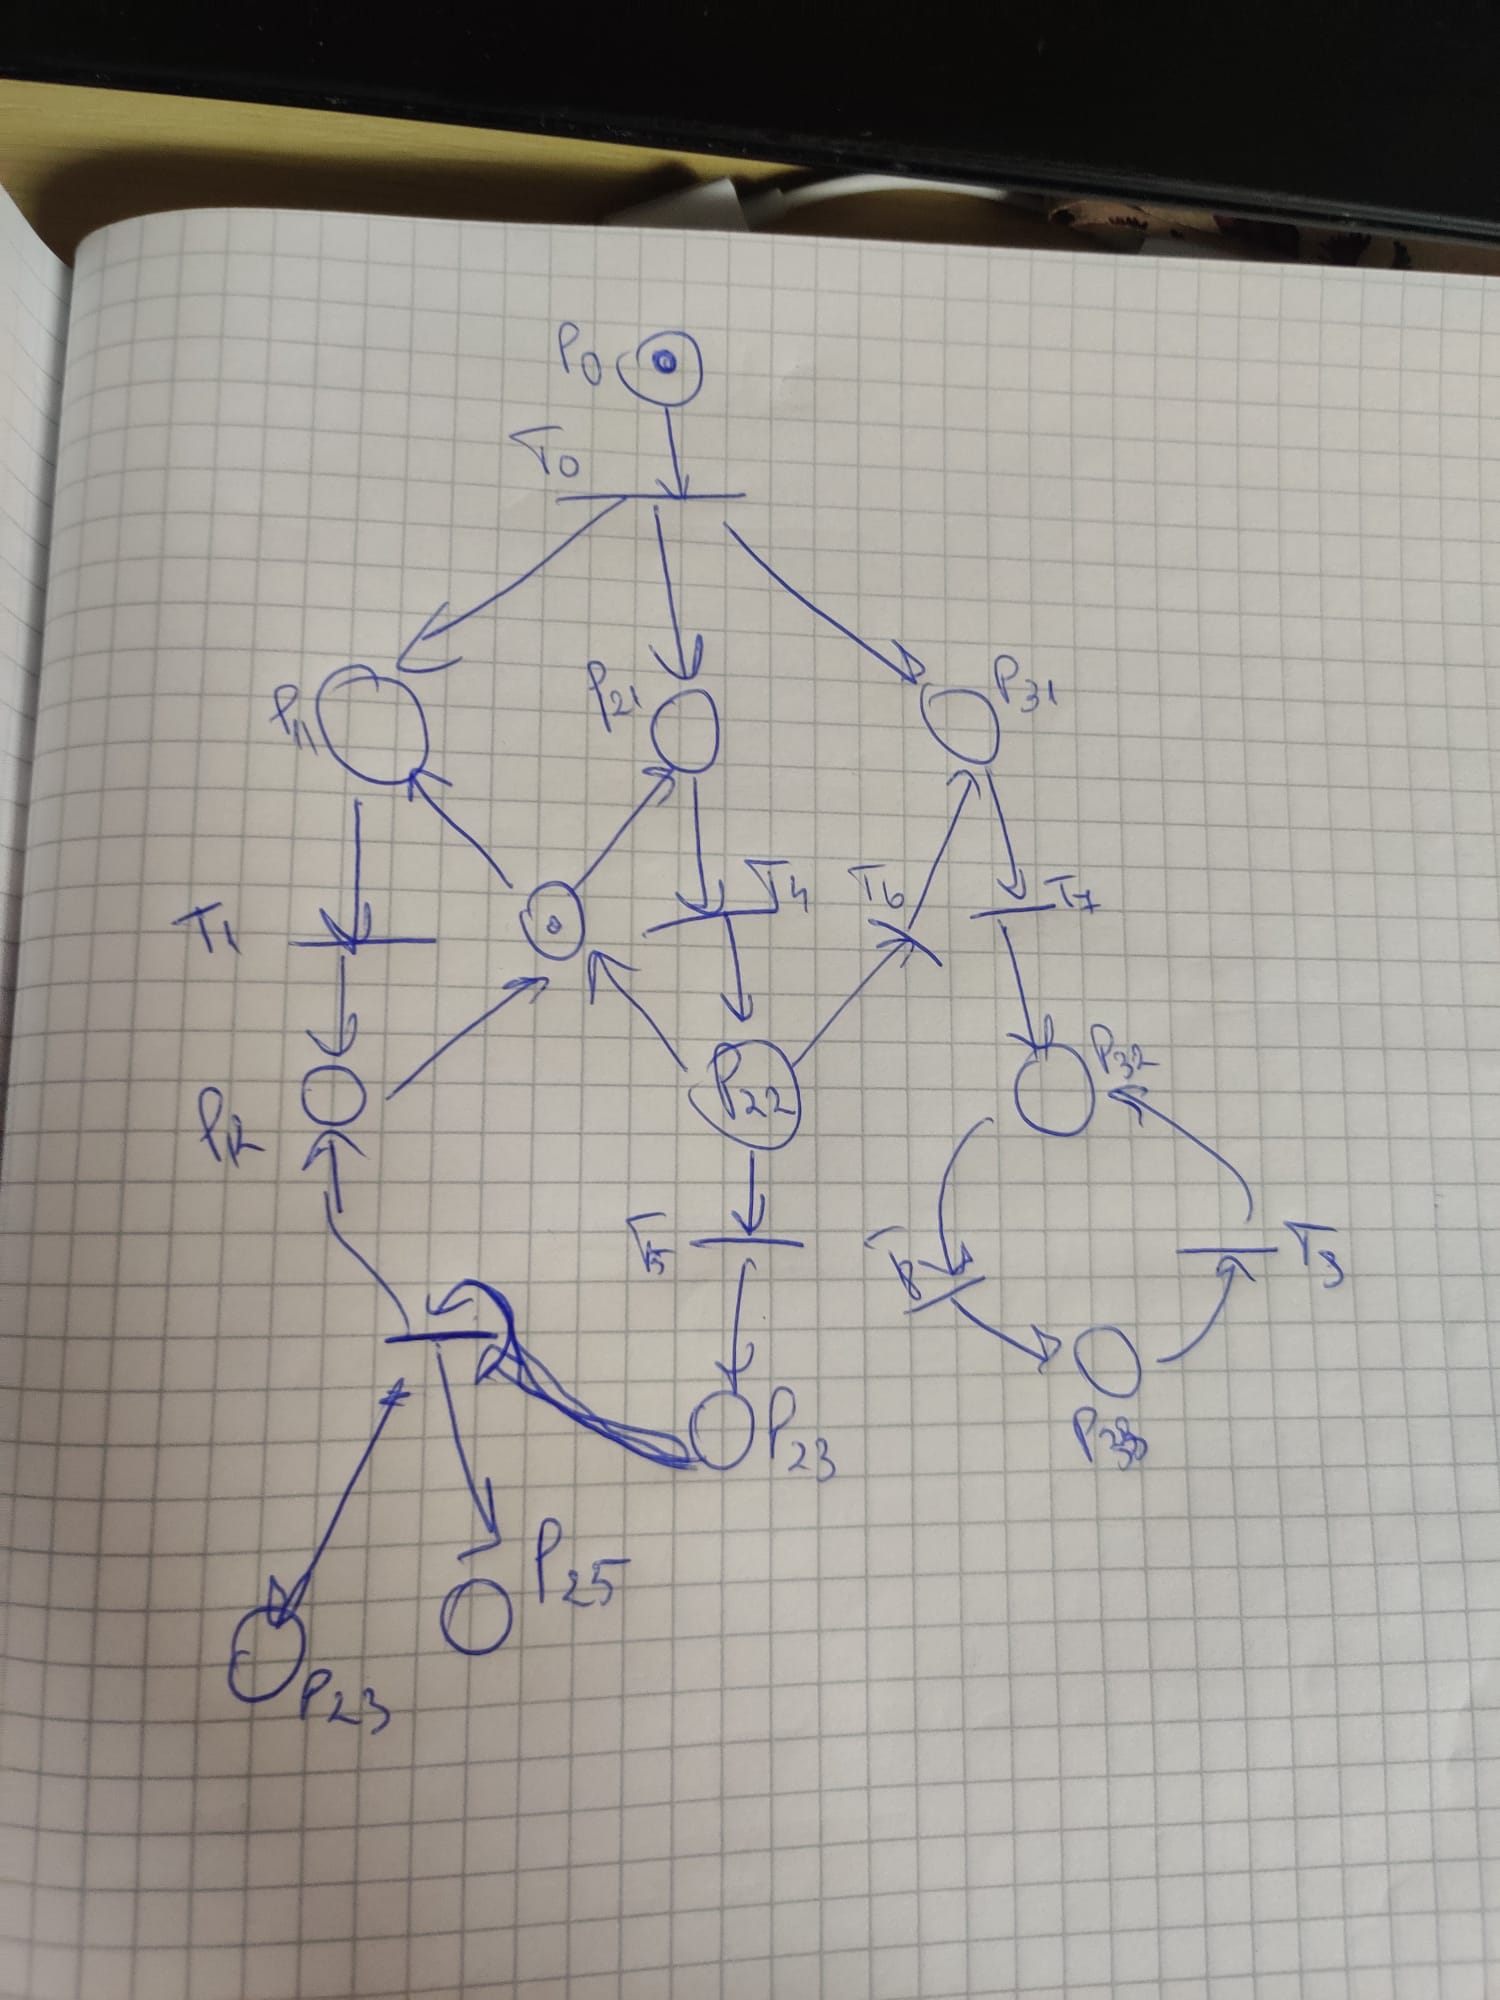 P0
T0
P11
P21
P31
T1
T4
T6
T7
P12
P22
P32
T5
T8
T9
P23
P33
P25
P23